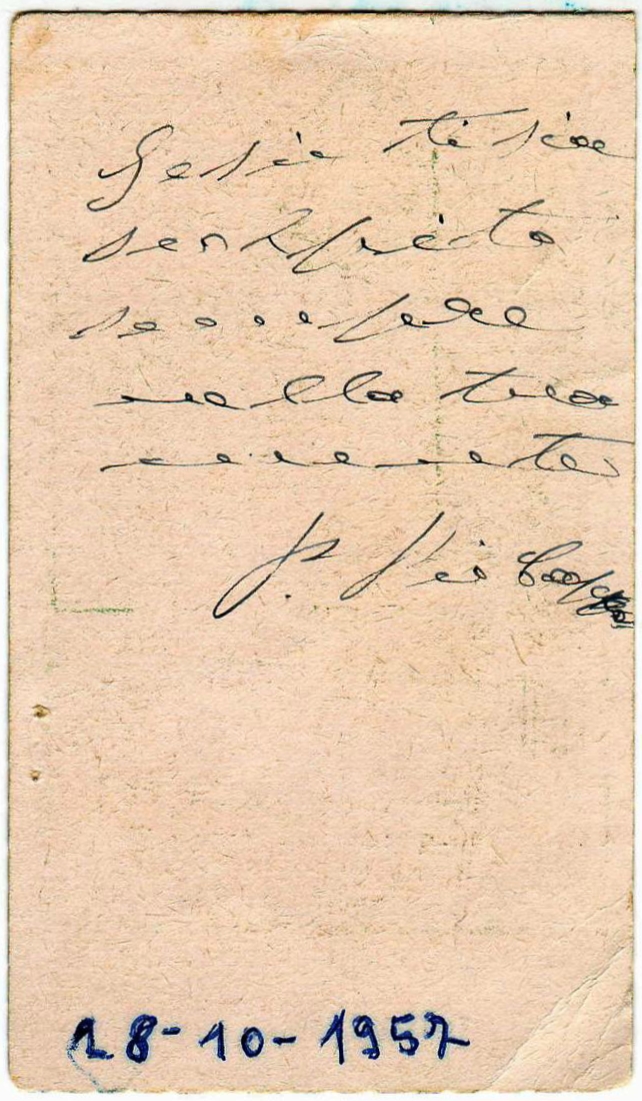 Gesù ti sia
sempre
nella tua
mente
P. Pio Capp
18-10-1957